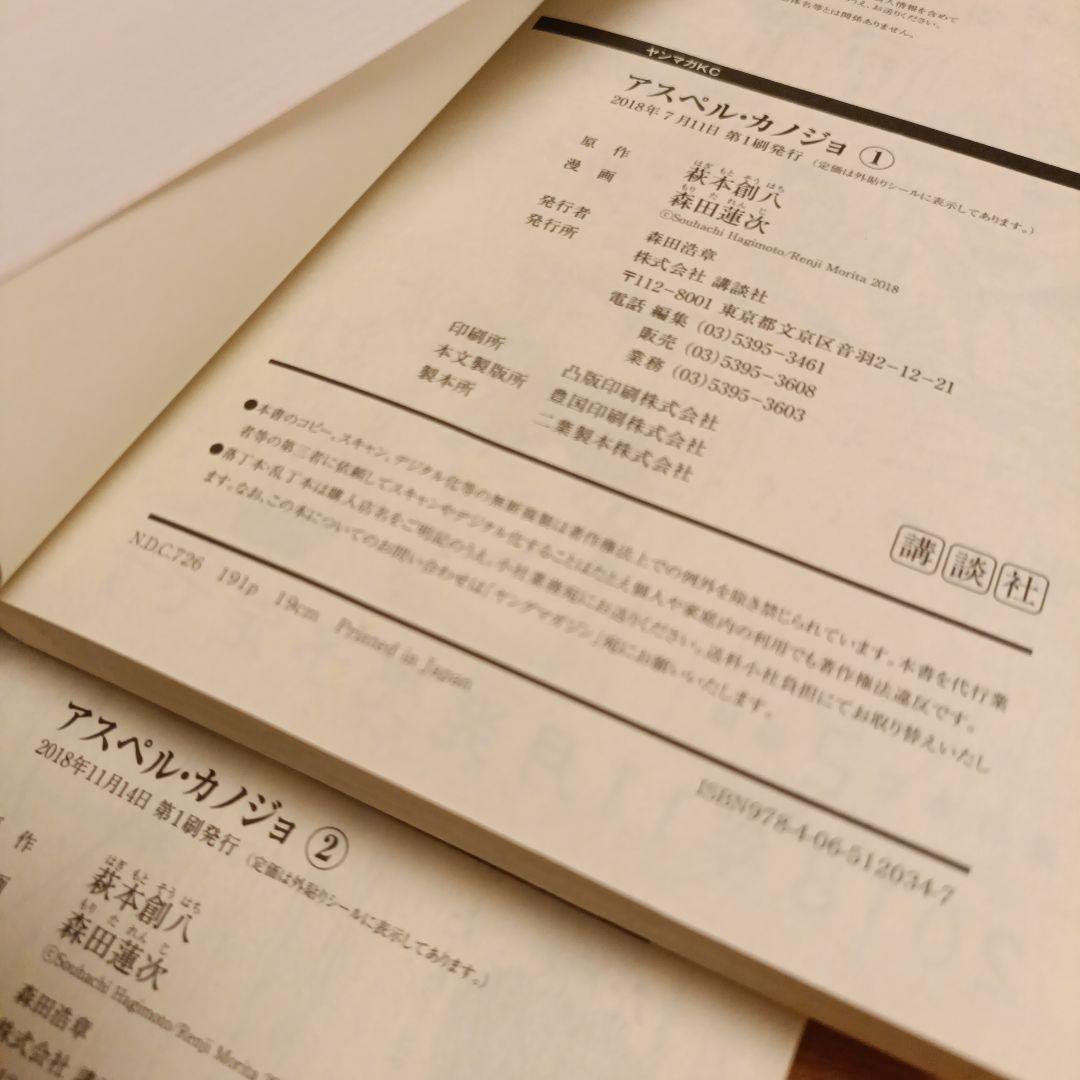 人情報を含めて
え、お送りください。
体名等とは関係ありません。
ヤンマガKC
アスペル・カノジョ ①
2018年7月11日 第1刷発行 (定価は外貼りシールに表示してあります。)
原作 萩本創八
はぎ もと そう はち
漫画 森田蓮次
もり た れん じ
©Souhachi Hagimoto/Renji Morita 2018
発行者 森田浩章
発行所 株式会社 講談社
〒112-8001 東京都文京区音羽2-12-21
電話 編集 (03)5395-3461
販売 (03)5395-3608
業務 (03)5395-3603
印刷所 凸版印刷株式会社
本文製版所 豊国印刷株式会社
製本所 二葉製本株式会社
講談社
●本書のコピー、スキャン、デジタル化等の無断複製は著作権法上での例外を除き禁じられています。本書を代行業
者等の第三者に依頼してスキャンやデジタル化することはたとえ個人や家庭内の利用でも著作権法違反です。
●落丁本・乱丁本は購入店名をご明記のうえ、小社業務宛にお送りください。送料小社負担にてお取り替えいたし
ます。なお、この本についてのお問い合わせは「ヤングマガジン」宛にお願いいたします。
N.D.C.726 191p 19cm Printed in Japan
ISBN978-4-06-512034-7
アスペル・カノジョ ②
2018年11月14日 第1刷発行 (定価は外貼りシールに表示してあります。)
作 萩本創八
はぎ もと そう はち
画 森田蓮次
もり た れん じ
©Souhachi Hagimoto/Renji Morita
森田浩章
株式会社 講